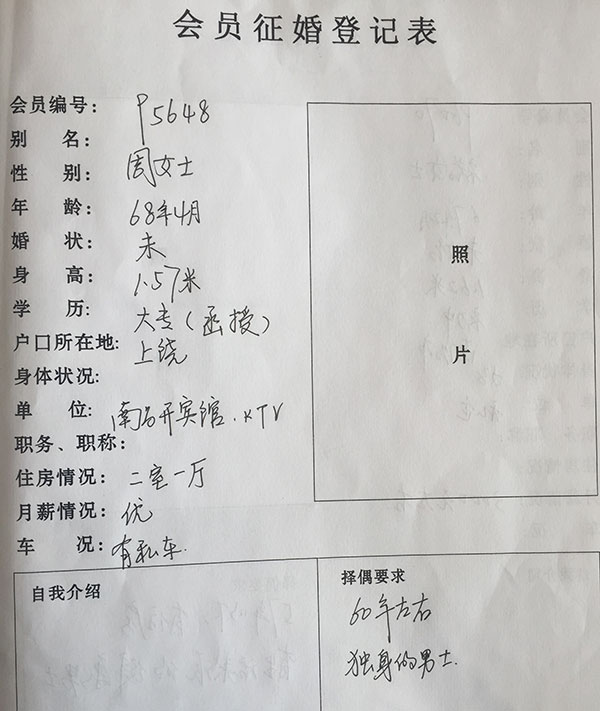 会员征婚登记表
会员编号： P5648
别 名：
性 别： 周女士
年 龄： 68年4月
婚 状： 未
身 高： 1.57米
学 历： 大专（函授）
户口所在地： 上饶
身体状况：
单 位： 南昌开宾馆.KTV
职务、职称：
住房情况： 二室一厅
月薪情况： 优
车 况： 有私车.
照
片
自我介绍
择偶要求
60年左右
独身的男士.